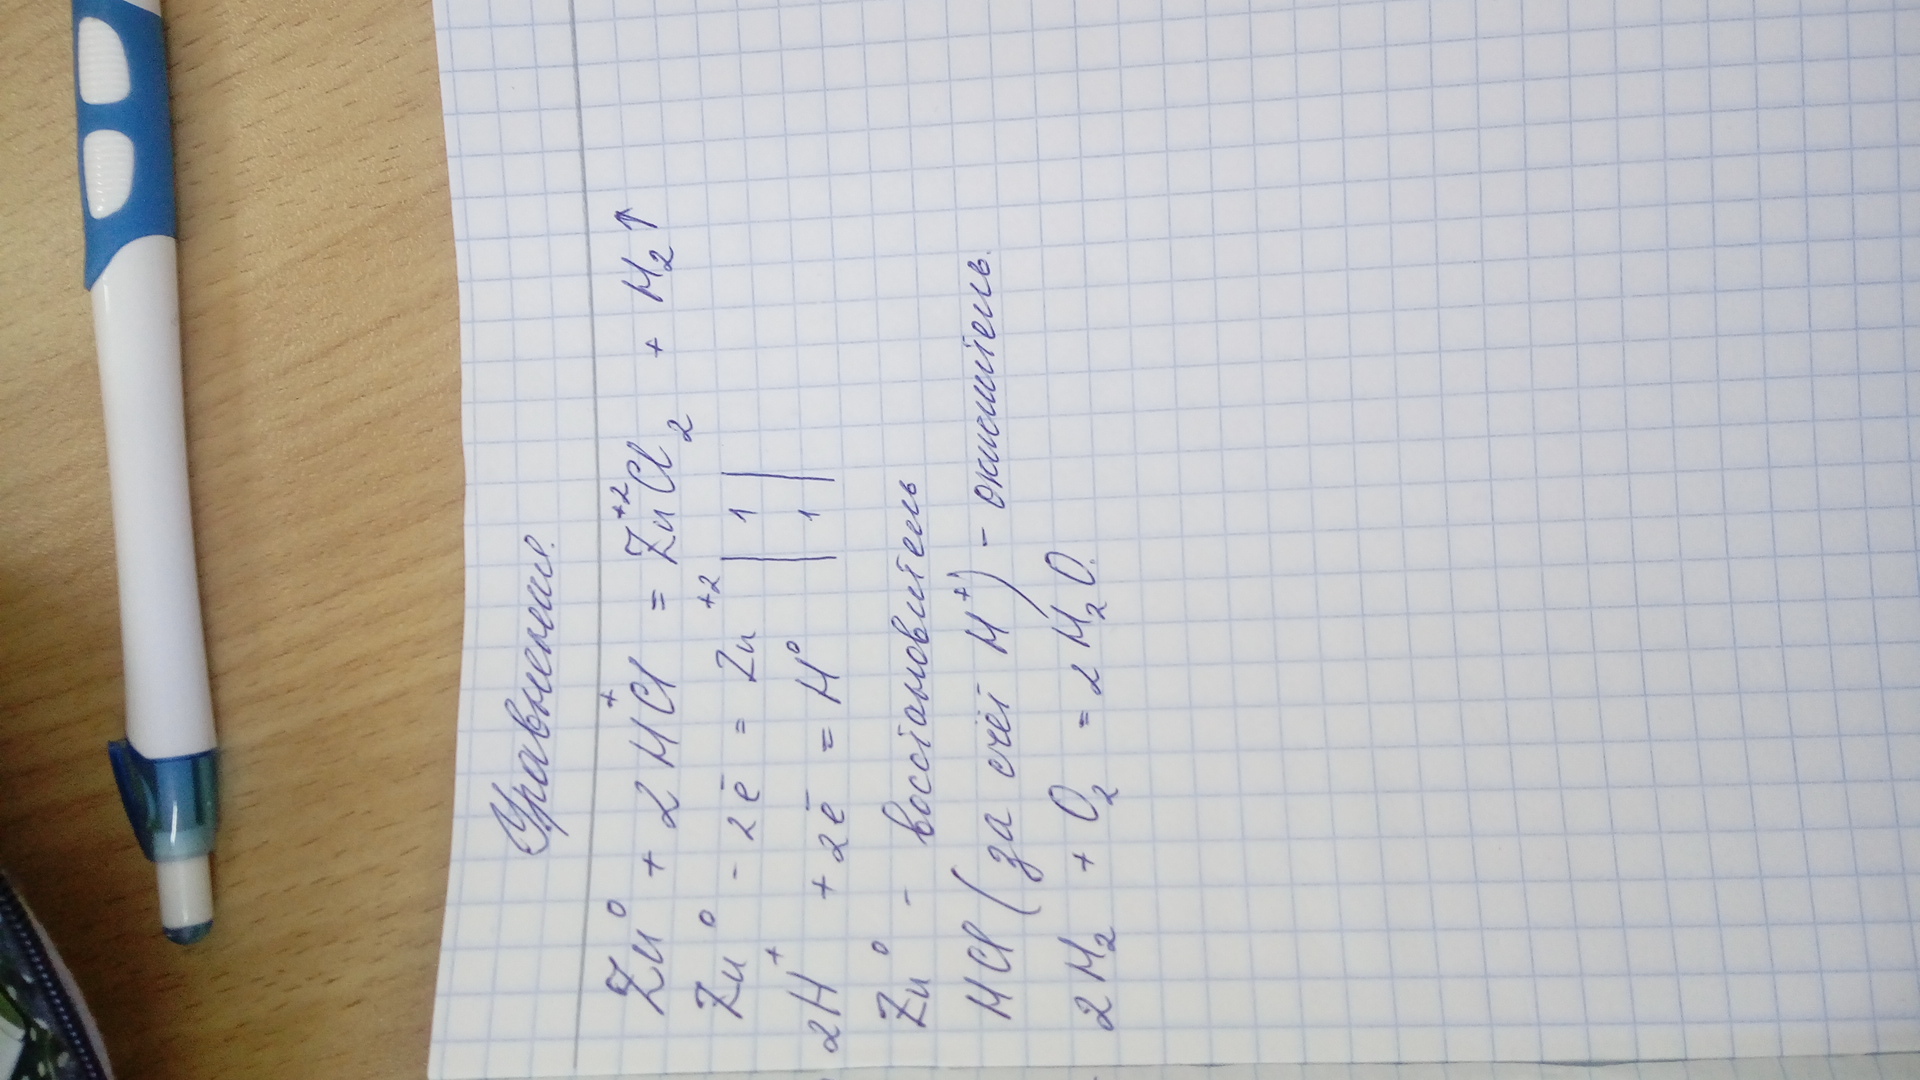 Уравнение.
Zn⁰ + 2H⁺Cl = Zn⁺²Cl₂ + H₂↑
Zn⁰ - 2ē = Zn⁺² | 1 |
2H⁺ + 2ē = H⁰ | 1 |
Zn⁰ - восстановитель
HCl (за счёт H⁺) - окислитель.
2H₂ + O₂ = 2H₂O.